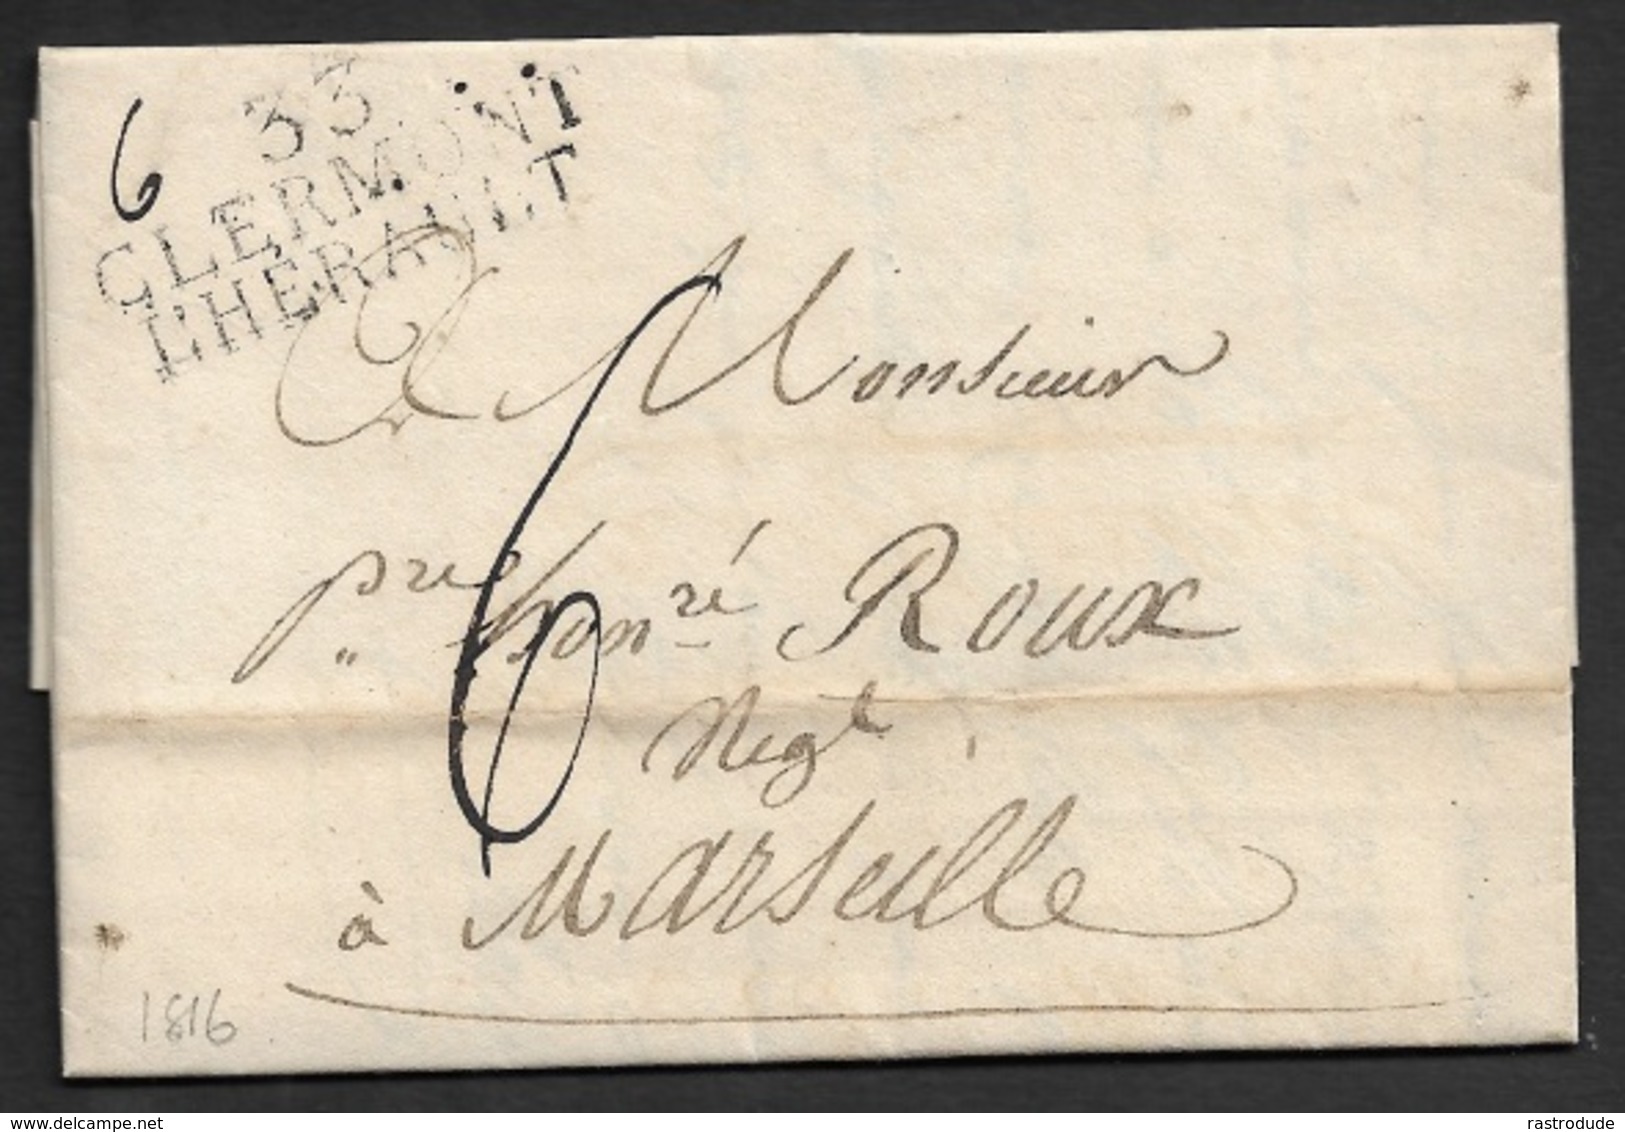 6
33
CLERMONT
L'HÉRAULT
A Monsieur
pre honré Roux
Negt
6
à Marseille
1816
www.delcampe.net
rastrodude